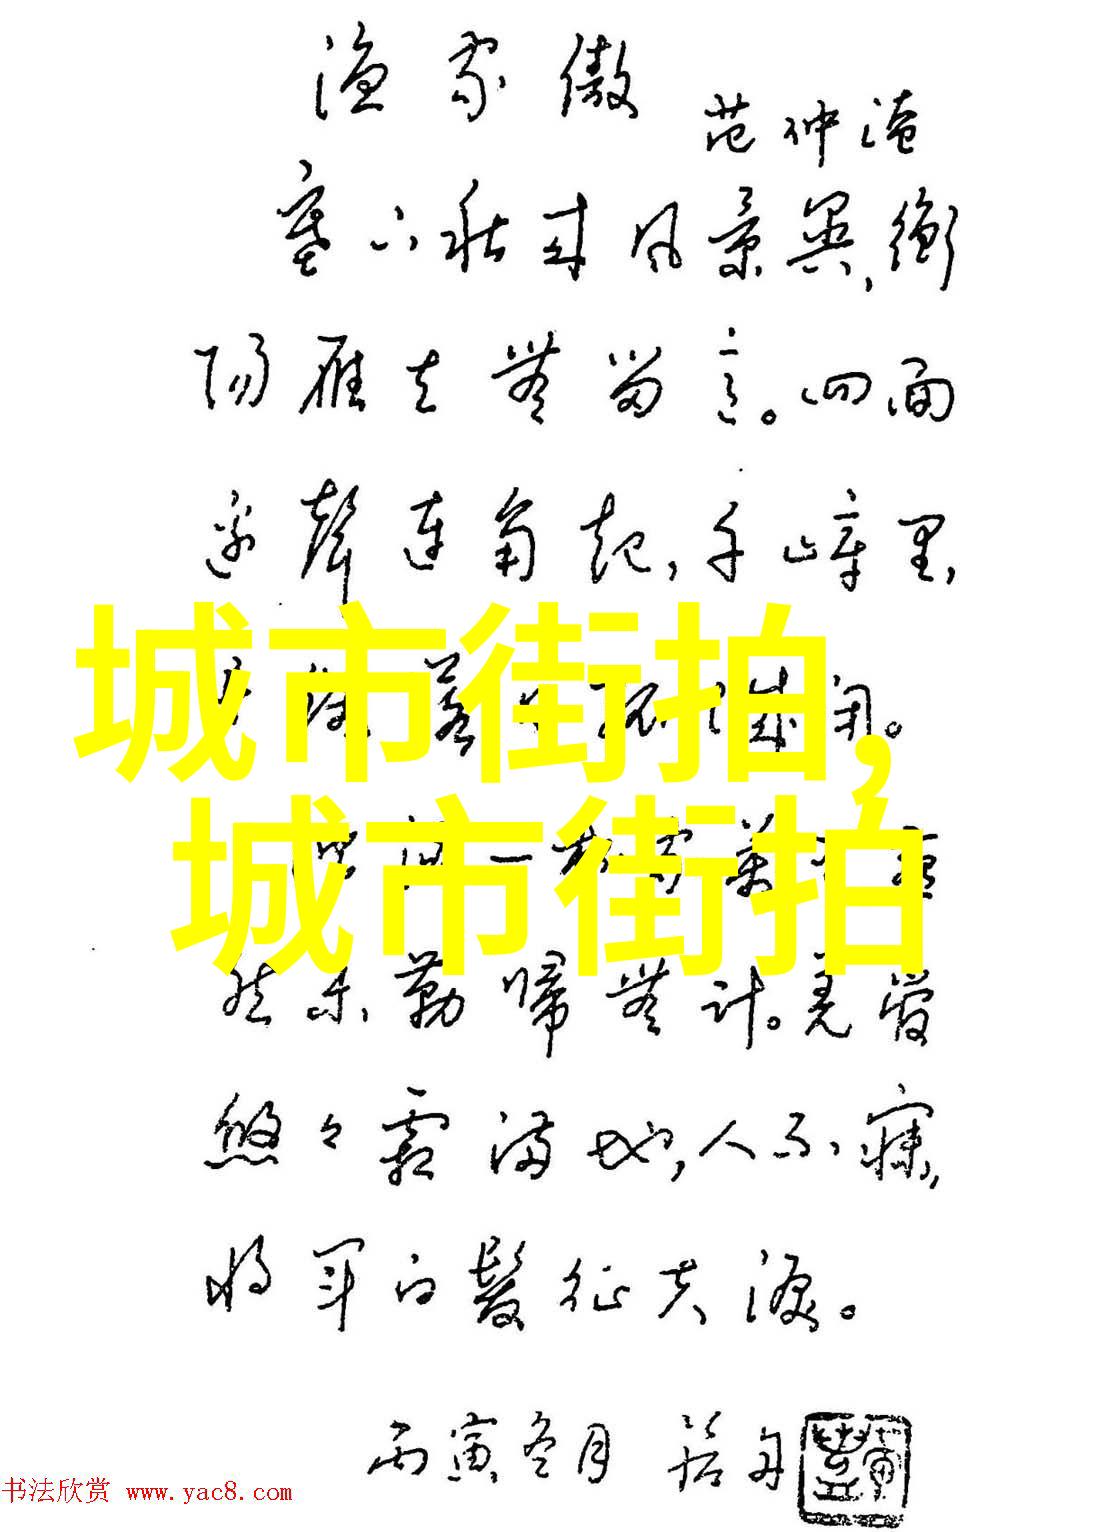 渔家傲
范仲淹
塞下秋来风景異,衡
阳雁去無留意。四面
边聲连角起,千嶂里,
城市街拍,
落 城闭。
城市街拍
一 家萬
然未勒歸無计。羌管
悠々霜满地,人不寐,
将军白髮征夫淚。
丙寅冬月
书法欣赏 www.yac8.com